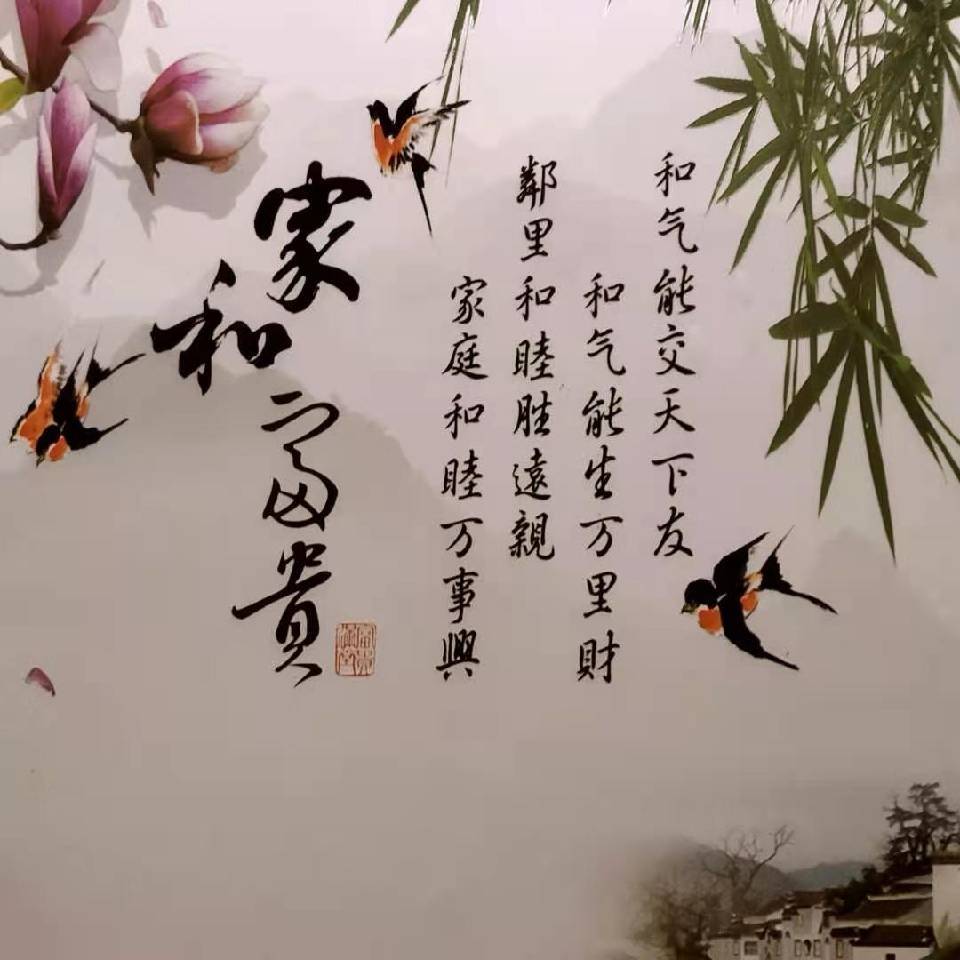 和气能交天下友
和气能生万里财
鄰里和睦胜遠親
家庭和睦万事興
家和富贵